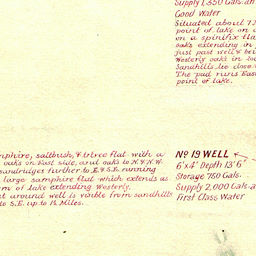 Supply 1,350 Gals. an
Good Water
Situated about 7
point of lake on
on a spinifex fla
oaks extending in
just past well & bei
Westerly oaks in
Sandhills lie close
The pad runs East
point of lake.
mphire, saltbush, & titree flat with a
oaks on East side, and oaks to N & N.W.
sandridges further to E. & S.E. running
large samphire flat which extends as
rn of lake extending Westerly.
at around well is visible from sandhills
to S.E. up to 1½ Miles.
No 19 WELL
6'x4' Depth 13'6"
Storage 760 Gals.
Supply 2,000 Gals. a
First Class Water